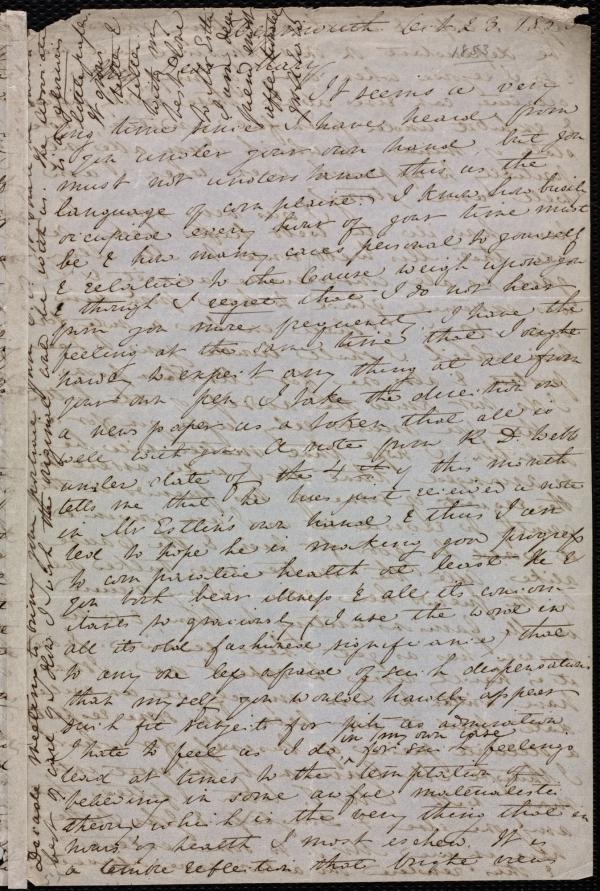 Oct. 23. 185
My dear
It seems a very
long time since I have heard from
you under your own hand, but you
must not understand this as the
language of complaint. I know how busily
occupied every hour of your time must
be & how many cares personal to yourself
& relative to the Cause weigh upon you
& though I regret that I do not hear
from you more frequently, I have the
feeling at the same time that I ought
hardly to expect any thing at all from
your own pen. I take the direction on
a newspaper as a token that all is
well with you. A note from R. D. Webb
under date of the 4th of this month
tells me that he has just received a note
in Mr Estlin's own hand & thus I am
led to hope he is making good progress
to comparative health at least. He &
you both bear illness & all its concom-
itants so graciously (I use the word in
all its old fashioned significance) that
to any one less afraid of such dispensations
than myself you would hardly appear
such fit subjects for pity as admiration.
I hate to feel as I do in my own case for such feelings
lead at times to the temptation of
believing in some awful materialistic
theory which is the very thing that in
hours of health I most eschew. It is
a terrible reflection that bright views
little paper
It gives
with my
best love
to Miss Estlin
I am dear
friend most
affectionately